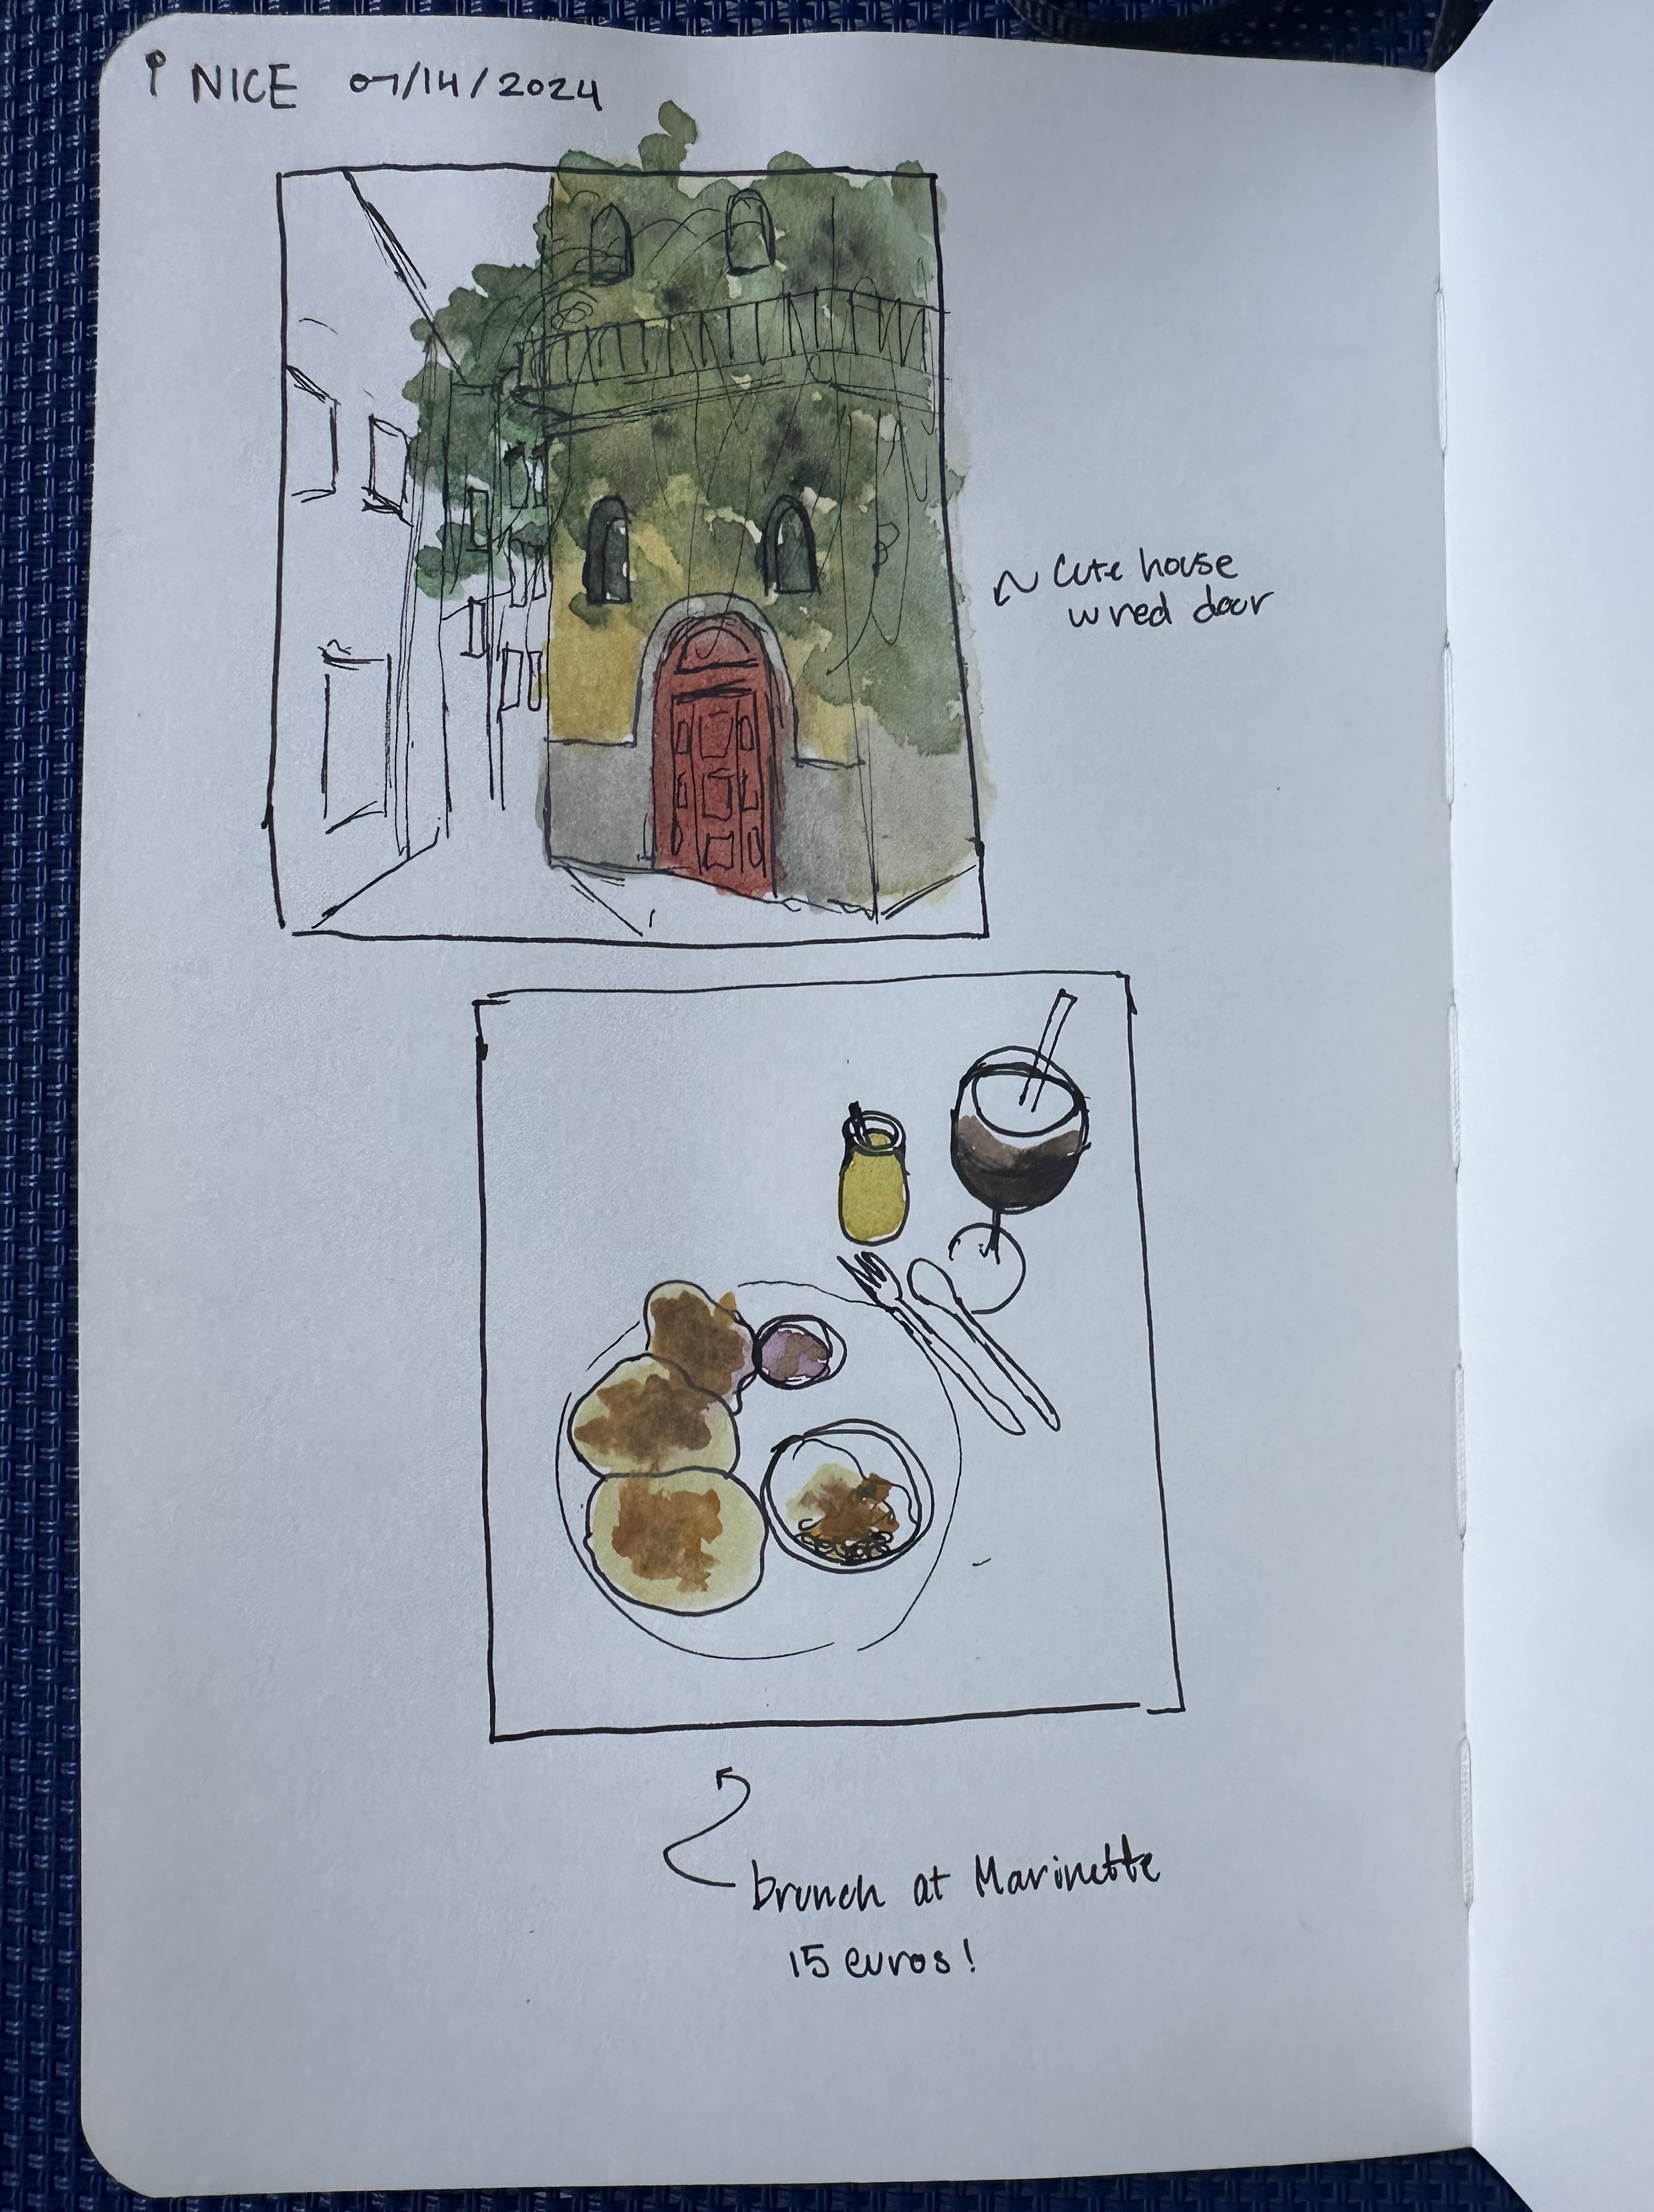 NICE 07/14/2024
Cute house
w red door
brunch at Marinette
15 euros!